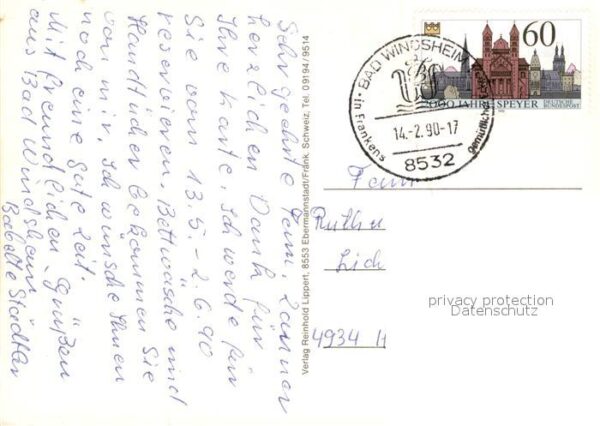 Sehr geehrte Fam. Zänner
herzlichen Dank für
Ihre Karte, Ich werde für
Sie vom 13.5. - 2.6.90
reservieren. Bettwäsche und
Handtücher bekommen Sie
von mir. Ich wünsche Ihnen
noch eine gute Zeit.
Mit freundlichen Grüßen
aus Bad Windsheim
Babette Städtler
Verlag Reinhold Lippert, 8553 Ebermannstadt/Fränk. Schweiz, Tel. 09194/9514
60
2000 JAHRE SPEYER
DEUTSCHE BUNDESPOST
BAD WINDSHEIM
14.-2.90-17
8532
in Frankens
Fam
4934 H
privacy protection
Datenschutz